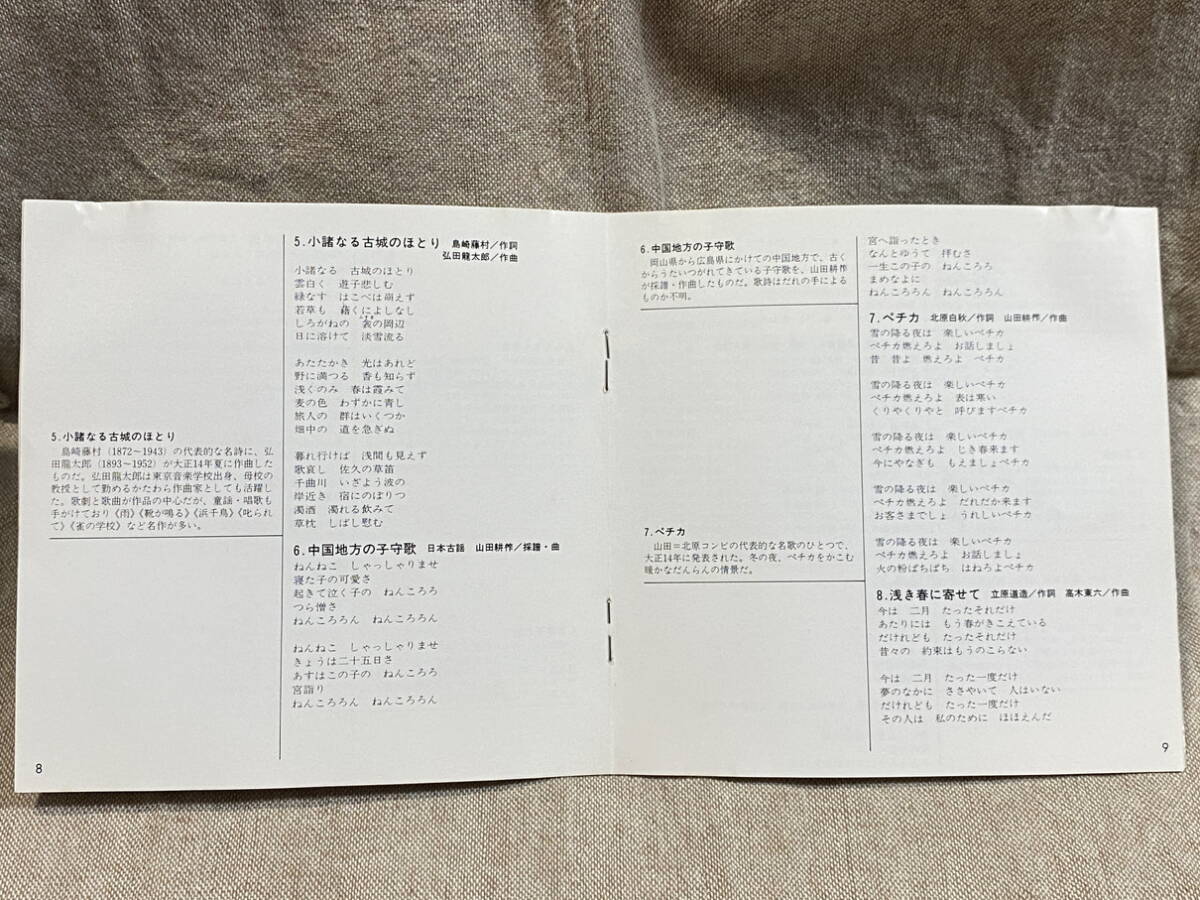 5.小諸なる古城のほとり
島崎藤村（1872〜1943）の代表的な名詩に、弘
田龍太郎（1893〜1952）が大正14年夏に作曲した
ものだ。弘田龍太郎は東京音楽学校出身、母校の
教授として勤めるかたわら作曲家としても活躍し
た。歌劇と歌曲が作品の中心だが、童謡・唱歌も
手がけており《雨》《靴が鳴る》《浜千鳥》《叱られ
て》《雀の学校》など名作が多い。
5.小諸なる古城のほとり 島崎藤村／作詞
弘田龍太郎／作曲
小諸なる 古城のほとり
雲白く 遊子悲しむ
緑なす はこべは萌えず
若草も 藉くによしなし
しろがねの 衾の岡辺
日に溶けて 淡雪流る
あたたかき 光はあれど
野に満つる 香も知らず
浅くのみ 春は霞みて
麦の色 わずかに青し
旅人の 群はいくつか
畑中の 道を急ぎぬ
暮れ行けば 浅間も見えず
歌哀し 佐久の草笛
千曲川 いざよう波の
岸近き 宿にのぼりつ
濁酒 濁れる飲みて
草枕 しばし慰む
6.中国地方の子守歌 日本古謡 山田耕筰／採譜・曲
ねんねこ しゃっしゃりませ
寝た子の可愛さ
起きて泣く子の ねんころろ
つら憎さ
ねんころろん ねんころろん
ねんねこ しゃっしゃりませ
きょうは二十五日さ
あすはこの子の ねんころろ
宮詣り
ねんころろん ねんころろん
8
6.中国地方の子守歌
岡山県から広島県にかけての中国地方で、古く
からうたいつがれてきている子守歌を、山田耕筰
が採譜・作曲したものだ。歌詩はだれの手による
ものか不明。
7.ペチカ
山田＝北原コンビの代表的な名歌のひとつで、
大正14年に発表された。冬の夜、ペチカをかこむ
暖かなだんらんの情景だ。
宮へ詣ったとき
なんとゆうて 拝むさ
一生この子の ねんころろ
まめなよに
ねんころろん ねんころろん
7.ペチカ 北原白秋／作詞 山田耕筰／作曲
雪の降る夜は 楽しいペチカ
ペチカ燃えろよ お話しましょ
昔 昔よ 燃えろよ ペチカ
雪の降る夜は 楽しいペチカ
ペチカ燃えろよ 表は寒い
くりやくりやと 呼びますペチカ
雪の降る夜は 楽しいペチカ
ペチカ燃えろよ じき春来ます
今にやなぎも もえましょペチカ
雪の降る夜は 楽しいペチカ
ペチカ燃えろよ だれだか来ます
お客さまでしょ うれしいペチカ
雪の降る夜は 楽しいペチカ
ペチカ燃えろよ お話しましょ
火の粉ぱちぱち はねろよペチカ
8.浅き春に寄せて 立原道造／作詞 高木東六／作曲
今は 二月 たったそれだけ
あたりには もう春がきこえている
だけれども たったそれだけ
昔々の 約束はもうのこらない
今は 二月 たった一度だけ
夢のなかに ささやいて 人はいない
だけれども たった一度だけ
その人は 私のために ほほえんだ
9